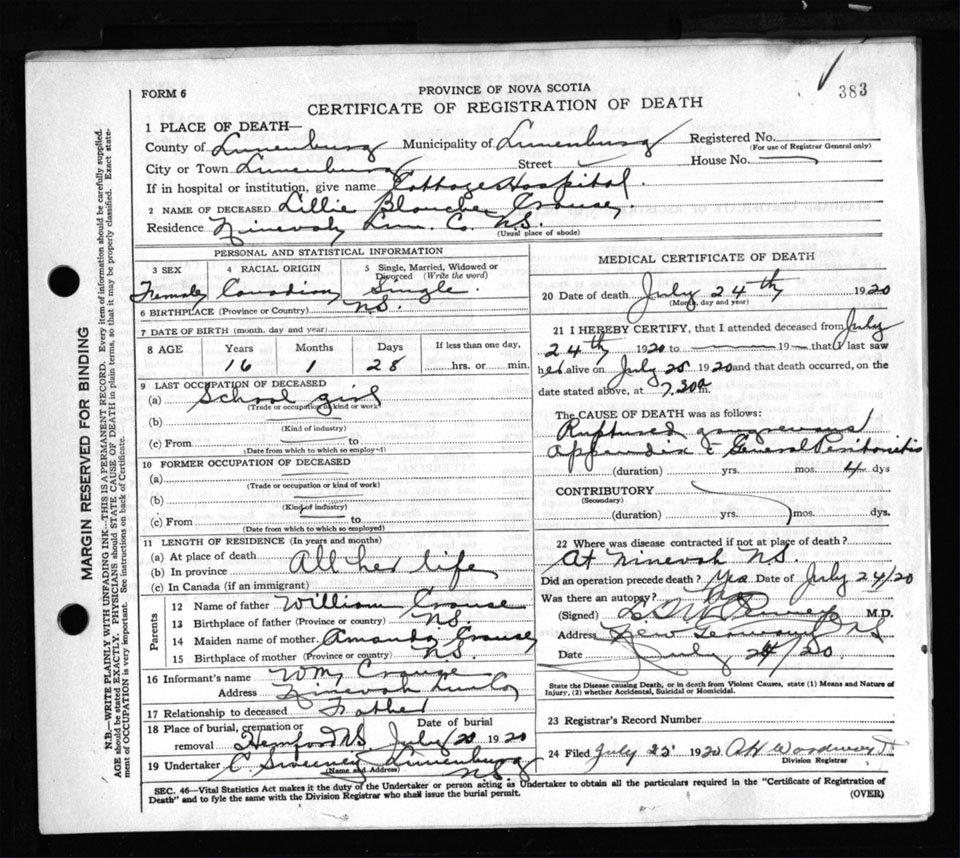 383
FORM 6
PROVINCE OF NOVA SCOTIA
CERTIFICATE OF REGISTRATION OF DEATH
MARGIN RESERVED FOR BINDING
N.B.—WRITE PLAINLY WITH UNFADING INK—THIS IS A PERMANENT RECORD. Every item of information should be carefully supplied.
AGE should be stated EXACTLY. PHYSICIANS should STATE CAUSE OF DEATH in plain terms, so that it may be properly classified. Exact statement of OCCUPATION is very important. See instructions on back of Certificate.
1 PLACE OF DEATH—
County of Lunenburg Municipality of Lunenburg Registered No.
(For use of Registrar General only)
City or Town Lunenburg Street House No.
If in hospital or institution, give name Cottage Hospital.
2 NAME OF DECEASED Lillie Blanche Crouse.
Residence Ninevah Lun. Co. N.S.
(Usual place of abode)
PERSONAL AND STATISTICAL INFORMATION
3 SEX 4 RACIAL ORIGIN 5 Single, Married, Widowed or Divorced (Write the word)
Female Canadian Single.
6 BIRTHPLACE (Province or Country) N.S.
7 DATE OF BIRTH (month, day and year)
8 AGE Years Months Days If less than one day,
16 1 28 hrs. or min.
9 LAST OCCUPATION OF DECEASED
(a) School girl
(Trade or occupation or kind of work)
(b)
(Kind of industry)
(c) From to
(Date from which to which so employed)
10 FORMER OCCUPATION OF DECEASED
(a)
(Trade or occupation or kind of work)
(b)
(Kind of industry)
(c) From to
(Date from which to which so employed)
11 LENGTH OF RESIDENCE (In years and months)
(a) At place of death
(b) In province All her life
(c) In Canada (if an immigrant)
Parents
12 Name of father William Crouse
13 Birthplace of father (Province or country) N.S.
14 Maiden name of mother Amanda Crouse
15 Birthplace of mother (Province or country) N.S.
16 Informant's name Wm Crouse
Address Ninevah Lun Co
17 Relationship to deceased Father
18 Place of burial, cremation or removal Date of burial
Hemford N.S. July 1920
19 Undertaker C. Sweeney Lunenburg
(Name and Address) N.S.
MEDICAL CERTIFICATE OF DEATH
20 Date of death July 24th 1920
(Month, day and year)
21 I HEREBY CERTIFY, that I attended deceased from July
24th 1920 to 19 that I last saw
her alive on July 1920 and that death occurred, on the
date stated above, at 7.30 a m.
The CAUSE OF DEATH was as follows:
Ruptured gangrenous
appendix c General Peritonitis
(duration) yrs. mos. 4 dys
CONTRIBUTORY
(Secondary)
(duration) yrs. mos. dys.
22 Where was disease contracted if not at place of death?
At Ninevah N.S.
Did an operation precede death? Yes Date of July 24/20
Was there an autopsy?
(Signed) M.D.
Address New Germany NS
Date July 24/20
State the Disease causing Death, or in death from Violent Causes, state (1) Means and Nature of
Injury, (2) whether Accidental, Suicidal or Homicidal.
23 Registrar's Record Number
24 Filed July 25 1920
Division Registrar
SEC. 46—Vital Statistics Act makes it the duty of the Undertaker or person acting as Undertaker to obtain all the particulars required in the "Certificate of Registration of
Death" and to fyle the same with the Division Registrar who shall issue the burial permit. (OVER)